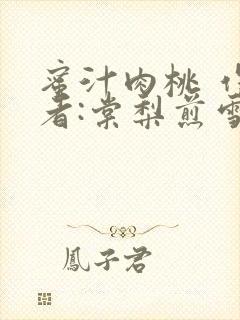 蜜汁肉桃 作
者:棠梨煎雪
鳳子君